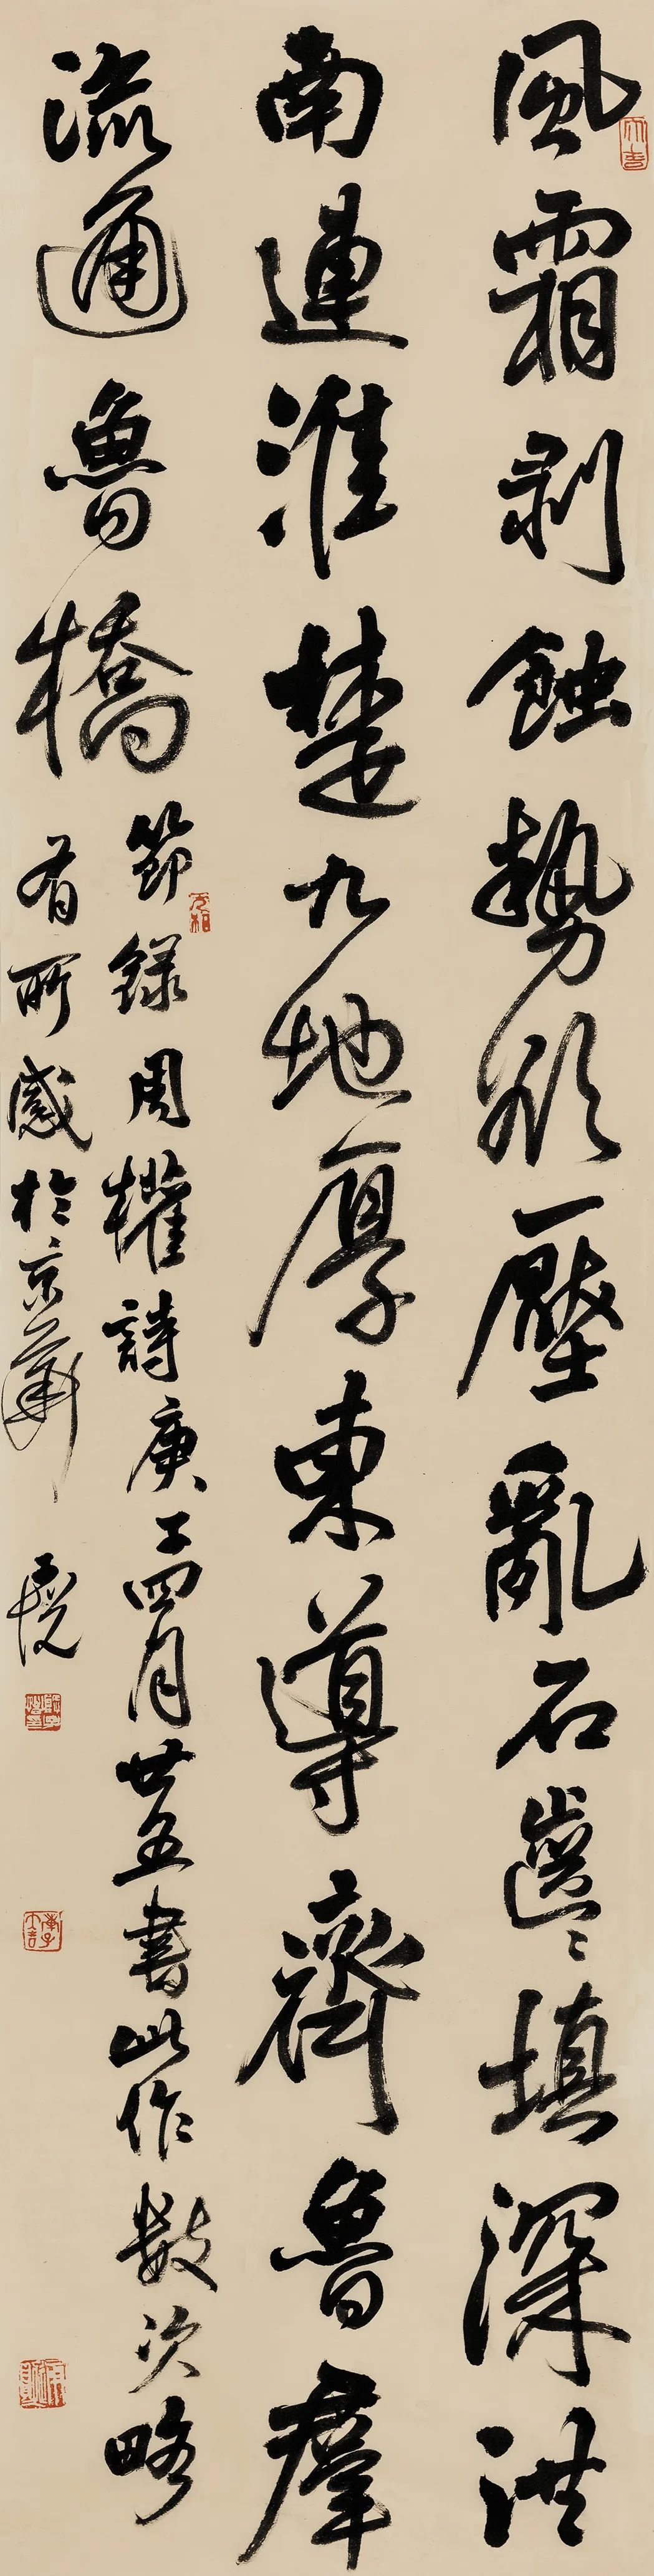 風霜剥蝕勢欲壓亂石齒〻填深洪
南連淮楚九地厚東導齊魯羣
流通魯橋
節錄周權詩庚子四月廿五書此作數次略
有所感於京華